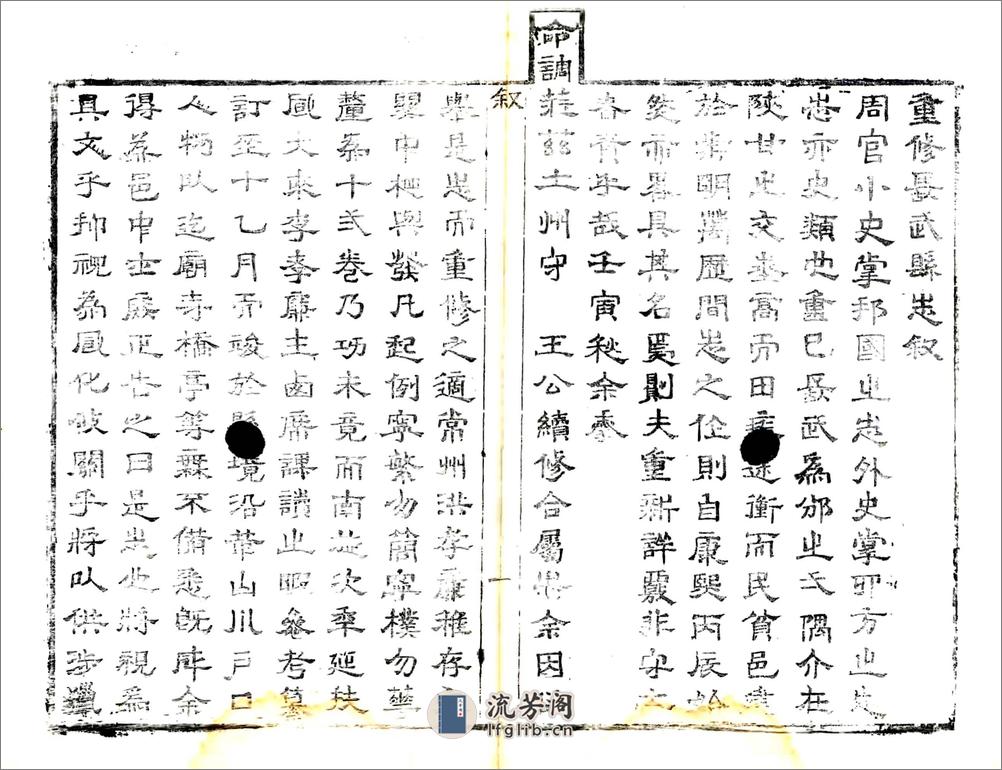 重修長武縣志叙
周官小史掌邦國之志外史掌四方之史
志亦史類也重已長武為邠之弌隅介在
陝甘之交基高而田途衝而民貧邑建
於歬明萬歷間志之作則自康熙丙辰始
然而畧具其名焉則夫重新詳覈非守土
者責乎哉壬寅秋余奉
命調
莅茲土州守王公續修合屬志余因
叙
一
舉是志而重修之適常州洪孝廉稚存
署中樞與發凡起例寧繁勿簡寧樸勿華
釐為十弌卷乃功未竟而南旋次秊延扶
風大來李孝廉主鹵席課讀之暇叅考
訂至十乙月而竣於縣境沿革山川戶口
人物以迄廟寺橋亭等霖不備悉既庠余
得為邑中士庶正告之曰是志也將視為
具文乎抑視為風化攸關乎將以供涉獵
流芳阁
lfglib.cn